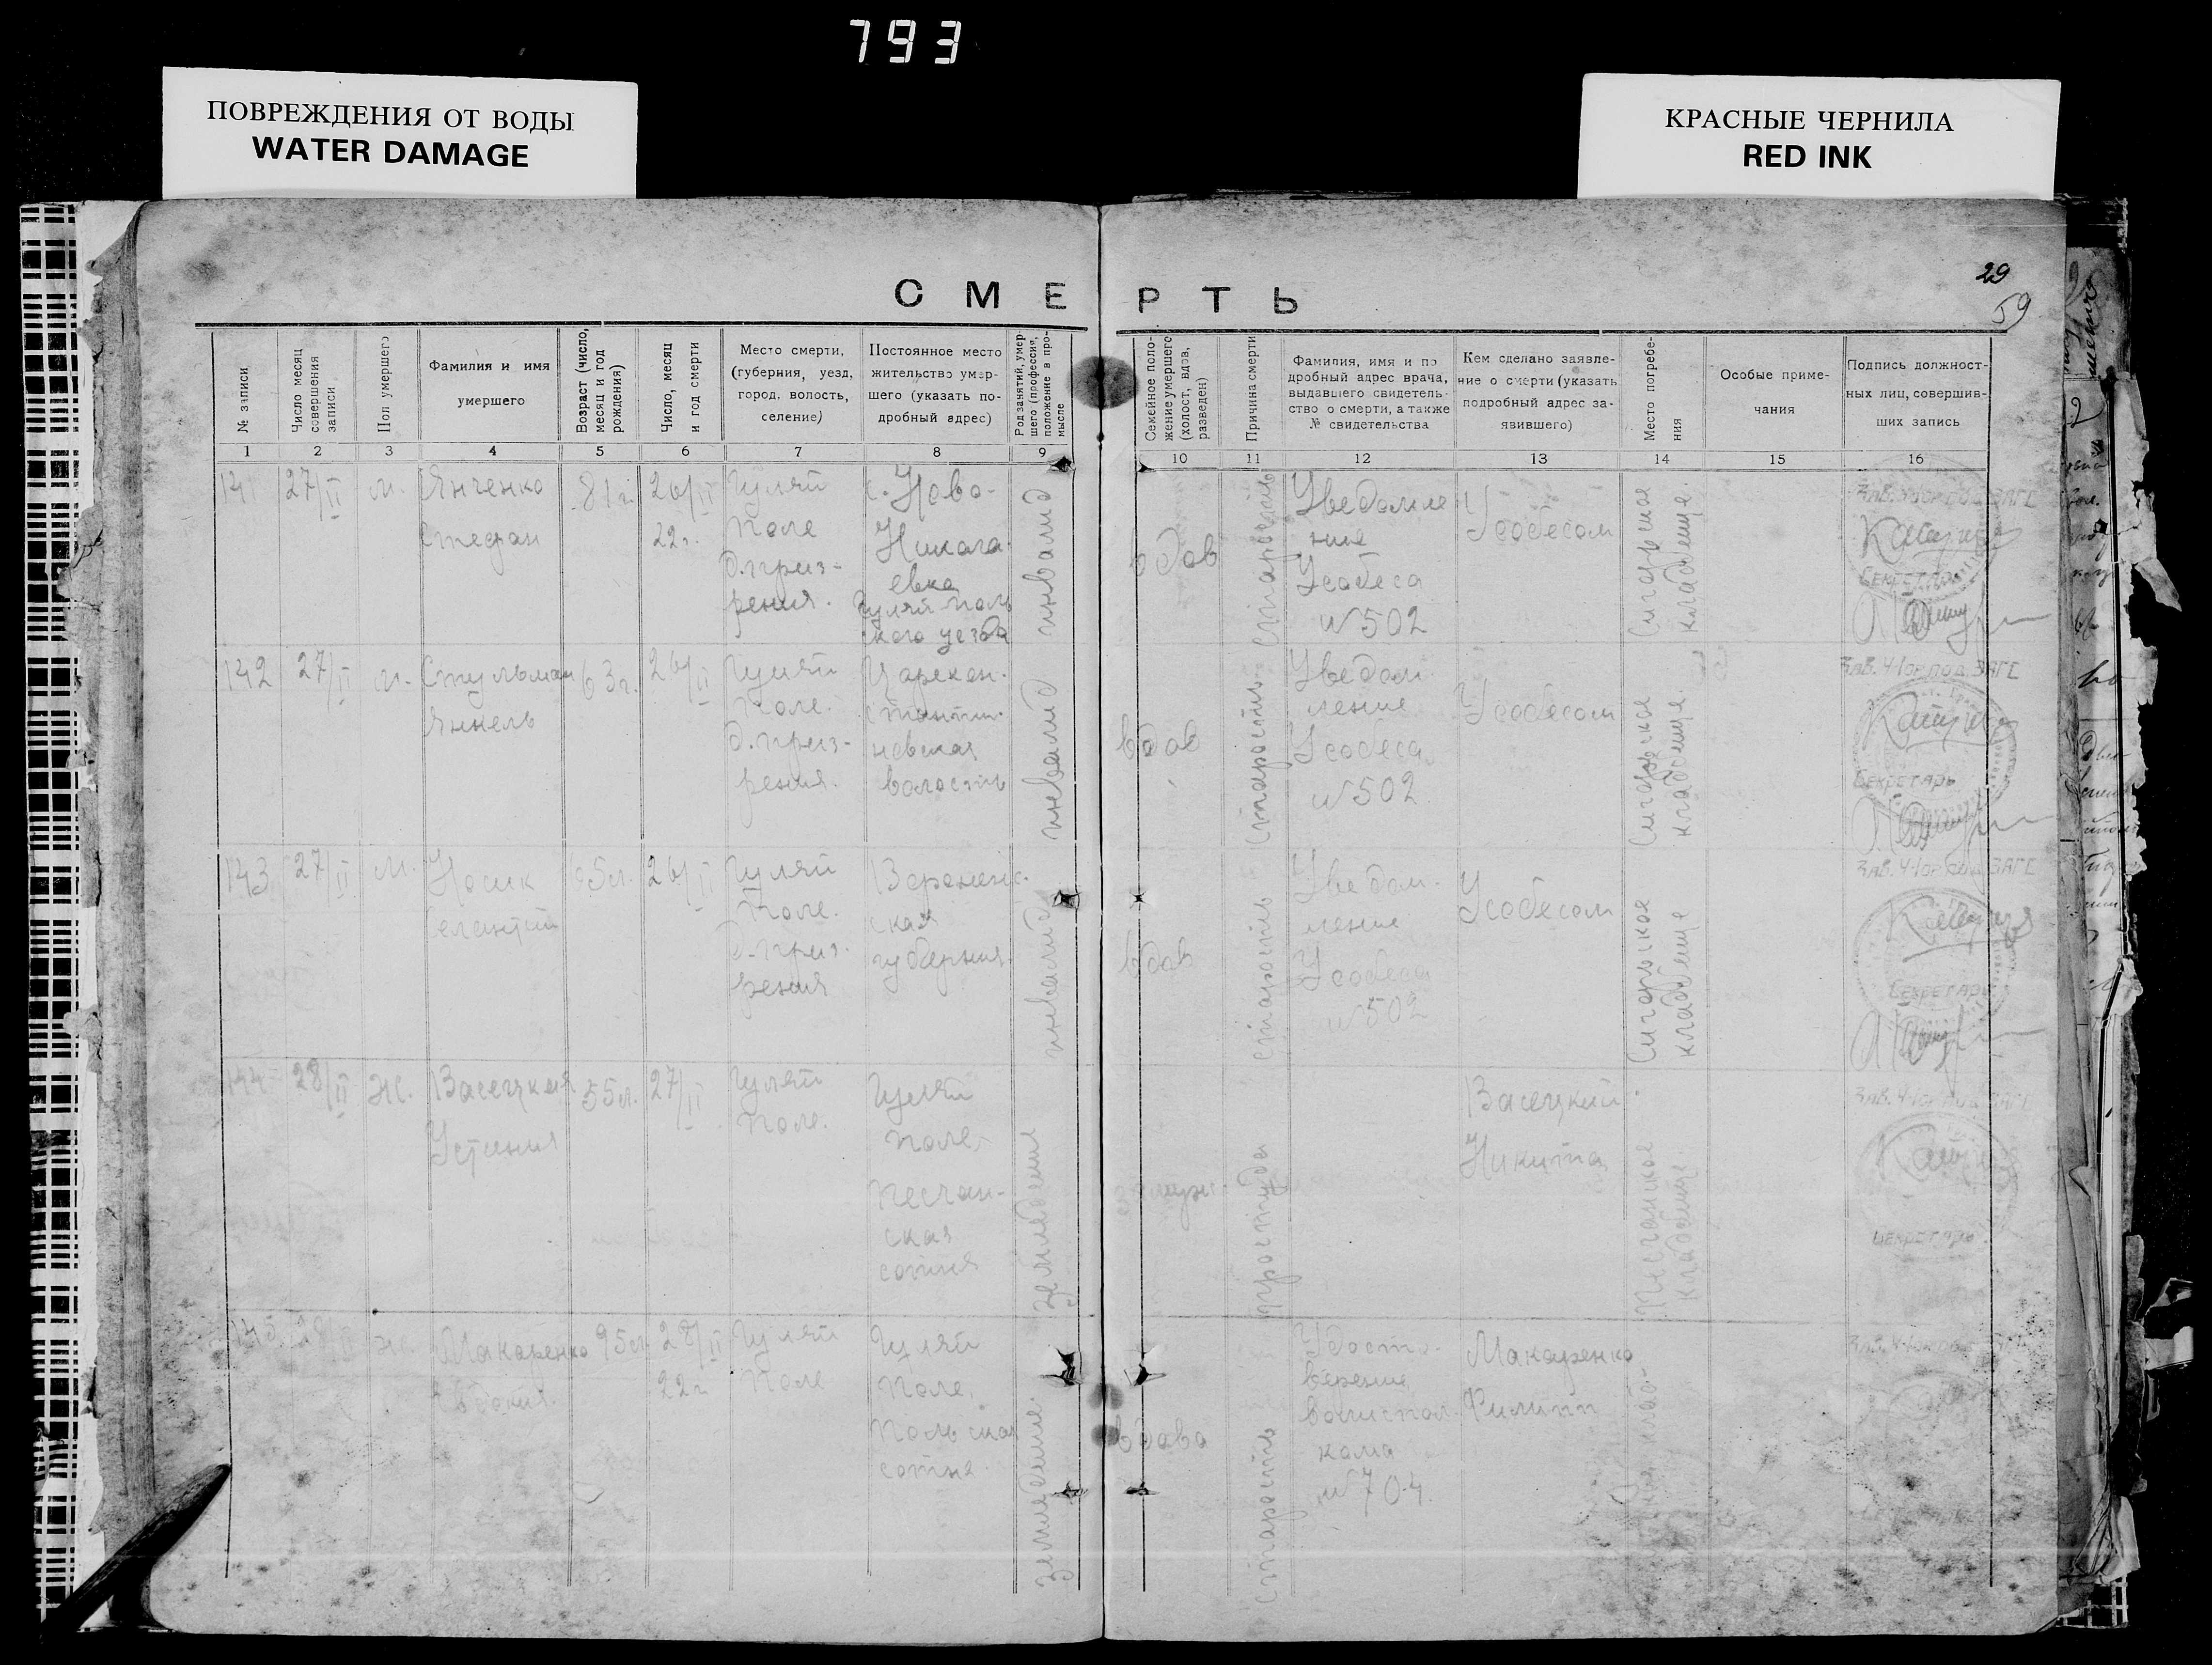 793
ПОВРЕЖДЕНИЯ ОТ ВОДЫ
WATER DAMAGE
КРАСНЫЕ ЧЕРНИЛА
RED INK
29
59
СМЕРТЬ
№ записи
Число месяц совершения записи
Пол умершего
Фамилия и имя умершего
Возраст (число, месяц и год рождения)
Число, месяц и год смерти
Место смерти, (губерния, уезд, город, волость, селение)
Постоянное место жительство умершего (указать подробный адрес)
Род занятий, умершего (профессия, положение в промысле
Семейное положение умершего (холост, вдов, разведен)
Причина смерти
Фамилия, имя и подробный адрес врача, выдавшего свидетельство о смерти, а также № свидетельства
Кем сделано заявление о смерти (указать подробный адрес заявившего)
Место погребения
Особые примечания
Подпись должностных лиц, совершивших запись
1 2 3 4 5 6 7 8 9 10 11 12 13 14 15 16
14
27/II
м.
Янченко
Стефан
81 г.
26/II
22 г.
Гуляй
Поле
д. приз-
рения.
с. Ново-
Никола
евка
Гуляй-Поль
ского уезда
инвалид
вдов
старость
Уведомле
ние
Усобеса
№ 502
Усобесом
кладбище.
Секретарь
142
27/II
м.
Стульман
Янкель
63 г.
26/II
Гуляй
Поле.
д. приз-
рения.
Царекон-
стантин-
новская
волость
инвалид
вдов
старость
Уведом
ление
Усобеса
№ 502
Усобесом
кладбище.
Зав. 4-1 ЗАГС
Секретарь
143
27/II
м.
Носик
26/II
Гуляй
Поле.
д. приз-
рения
Воронеж-
ская
губерния
инвалид
вдов
старость
Уведом-
ление
Усобеса
№ 502
Усобесом
кладбище
Зав. 4-1 ЗАГС
Секретарь
144
28/II
ж.
Васецкая
Устения
55 л.
27/II
Гуляй
Поле.
Гуляй
Поле,
Песчан-
ская
сотня
земледелие
замуж.
простуда
Васецкий
Никита
Песчанское
кладбище.
Секретарь
145
28/II
ж.
Макаренко
Евдокия.
95 л.
28/II
22 г.
Гуляй
Поле
Гуляй
Поле,
Польская
сотня.
земледелие.
вдова
старость
Удосто-
верение
волиспол-
кома
№ 704.
Макаренко
Филипп